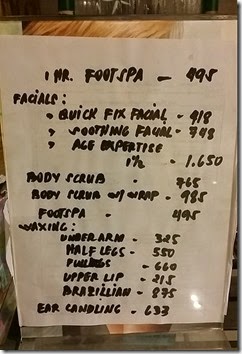 1 HR. FOOTSPA - 495
FACIALS:
• QUICK FIX FACIAL - 918
• SOOTHING FACIAL - 748
• AGE EXPERTISE
1½ - 1.650
BODY SCRUB - 765
BODY SCRUB W/ WRAP - 985
FOOTSPA - 495
WAXING:
UNDERARM - 325
HALF LEGS - 550
FULLLEGS - 660
UPPER LIP - 215
BRAZILLIAN - 875
EAR CANDLING - 633